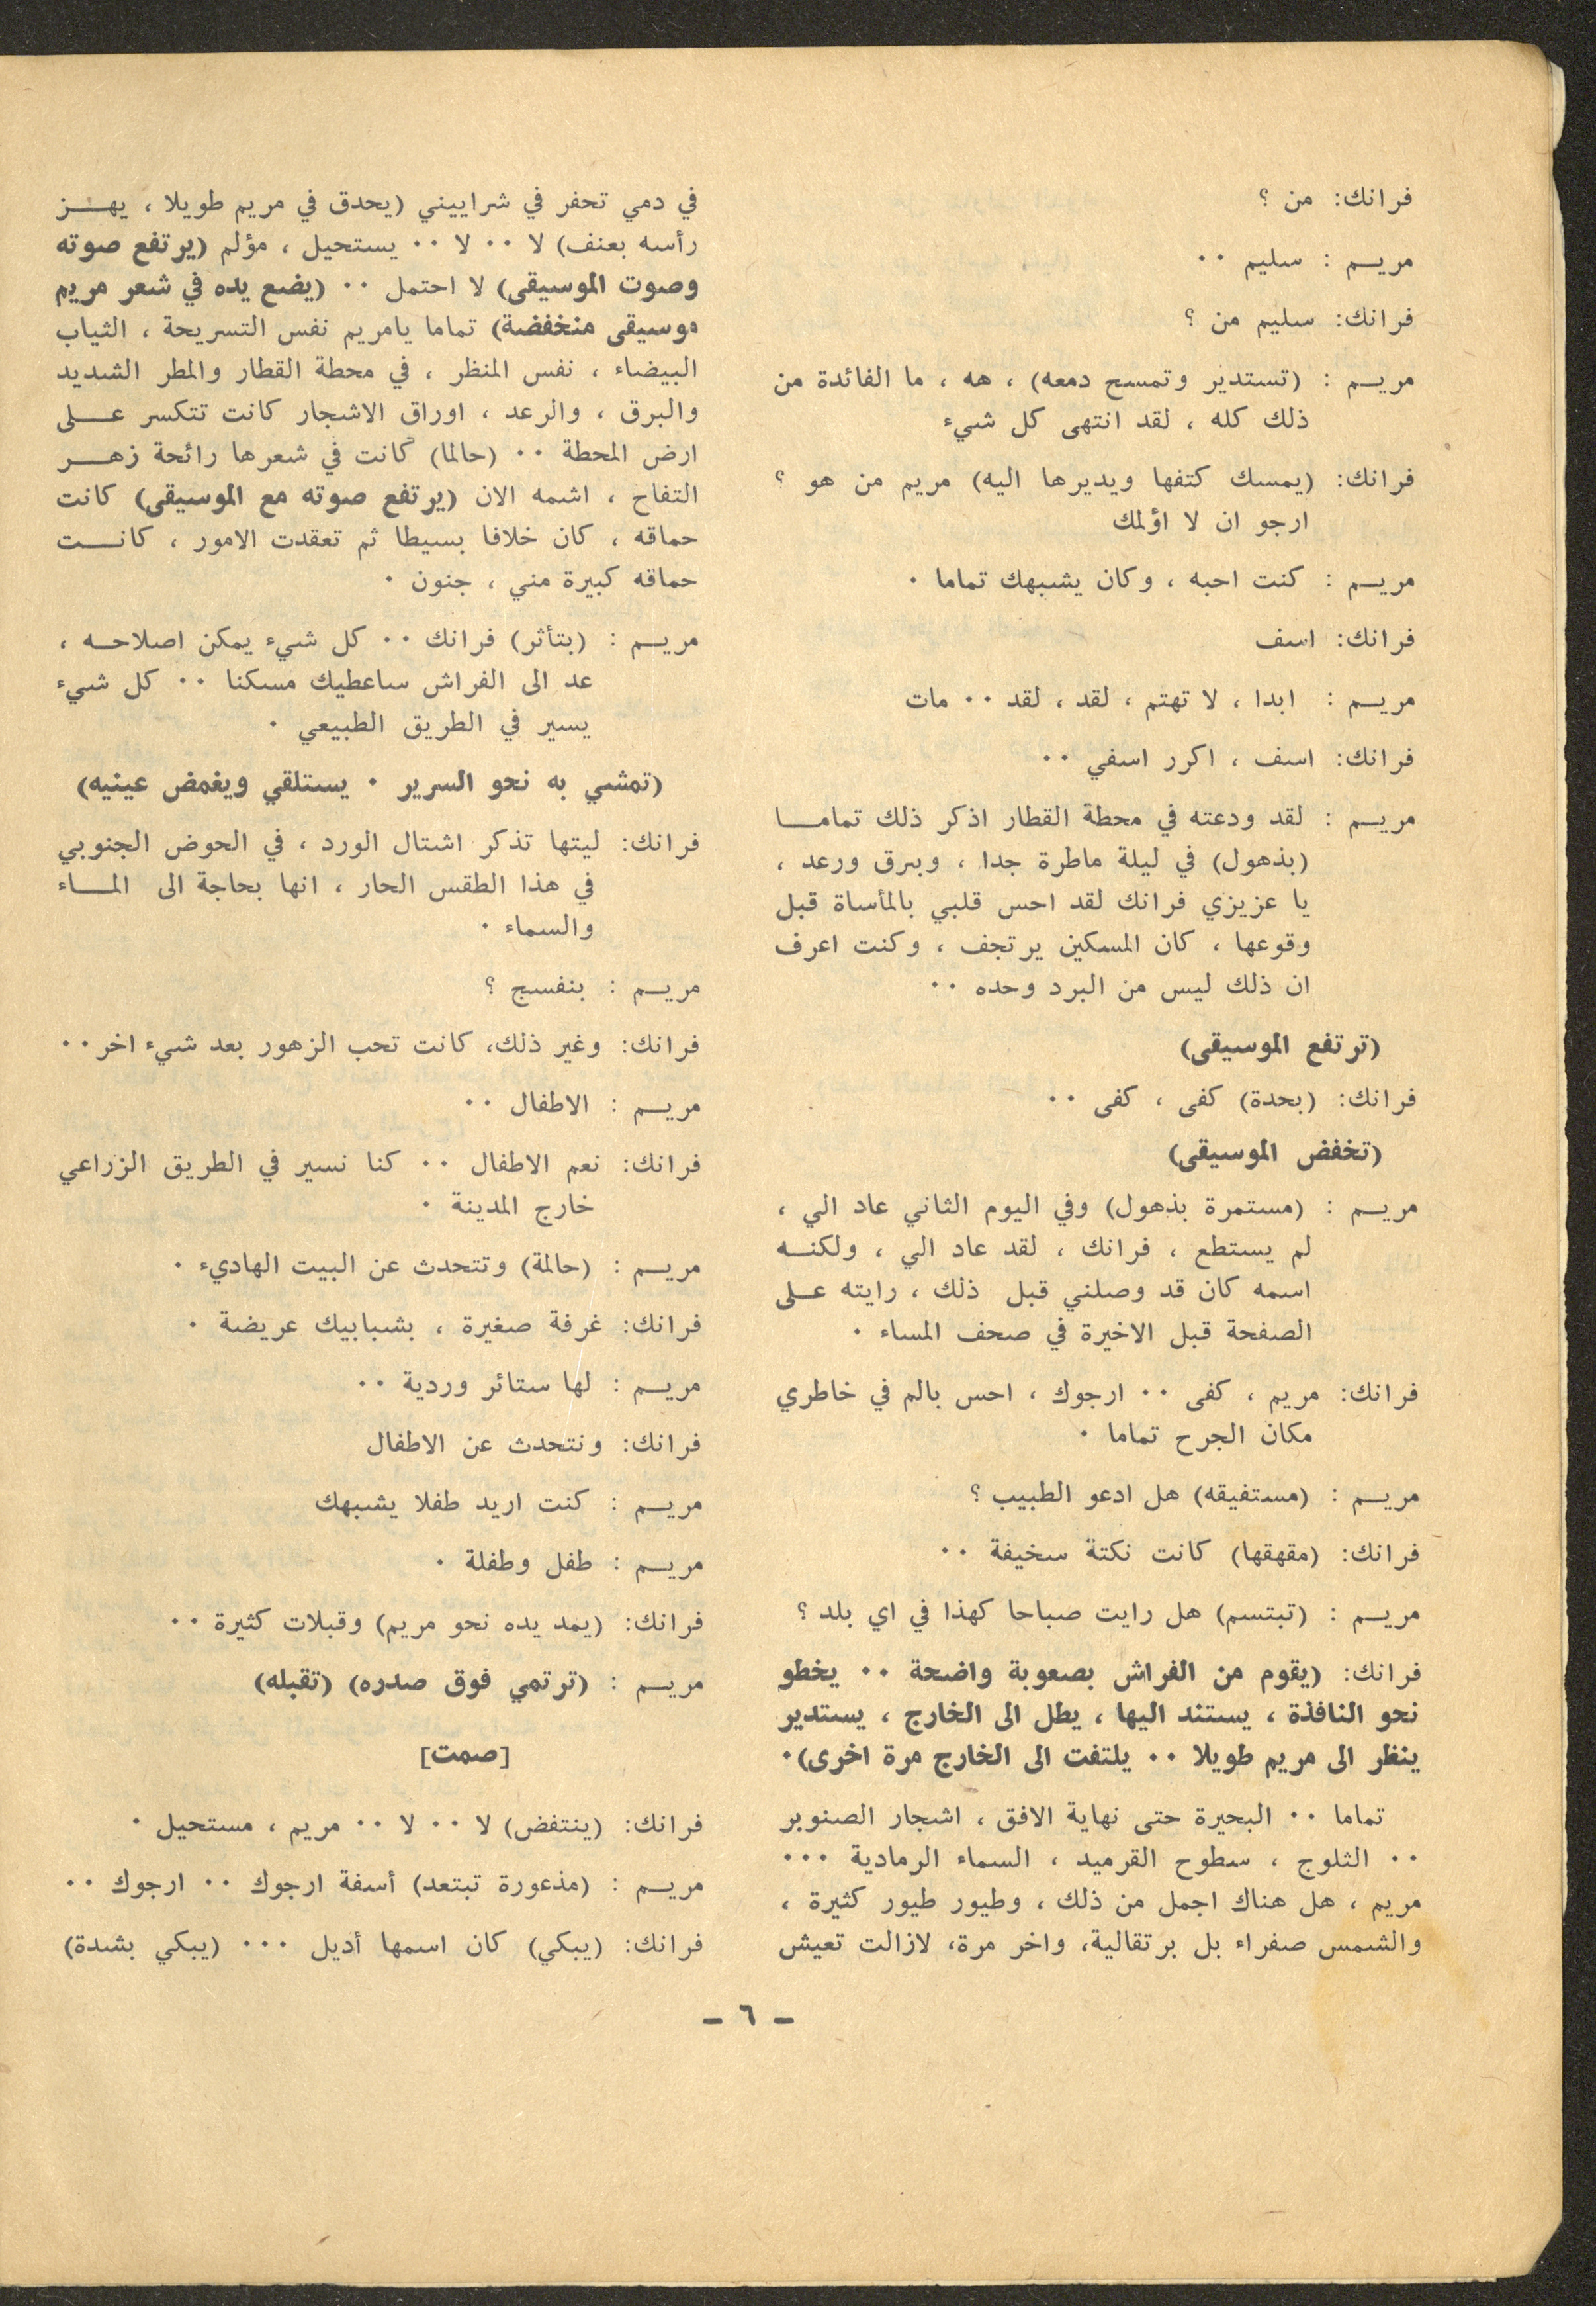 فرانك: من ؟
مريم : سليم ٠٠
فرانك: سليم من ؟
مريم : (تستدير وتمسح دمعه) ، هه ، ما الفائدة من
ذلك كله ، لقد انتهى كل شيء
فرانك: (يمسك كتفها ويديرها اليه) مريم من هو ؟
ارجو ان لا اؤلمك
مريم : كنت احبه ، وكان يشبهك تماما ٠
فرانك: اسف
مريم : ابدا ، لا تهتم ، لقد ، لقد ٠٠ مات
فرانك: اسف ، اكرر اسفي ٠٠
مريم : لقد ودعته في محطة القطار اذكر ذلك تماما
(بذهول) في ليلة ماطرة جدا ، وبرق ورعد ،
يا عزيزي فرانك لقد احس قلبي بالمأساة قبل
وقوعها ، كان المسكين يرتجف ، وكنت اعرف
ان ذلك ليس من البرد وحده ٠٠
(ترتفع الموسيقى)
فرانك: (بحدة) كفى ، كفى ٠٠
(تخفض الموسيقى)
مريم : (مستمرة بذهول) وفي اليوم الثاني عاد الي ،
لم يستطع ، فرانك ، لقد عاد الي ، ولكنه
اسمه كان قد وصلني قبل ذلك ، رايته على
الصفحة قبل الاخيرة في صحف المساء ٠
فرانك: مريم ، كفى ٠٠ ارجوك ، احس بالم في خاطري
مكان الجرح تماما ٠
مريم : (مستفيقه) هل ادعو الطبيب ؟
فرانك: (مقهقها) كانت نكتة سخيفة ٠٠
مريم : (تبتسم) هل رايت صباحا كهذا في اي بلد ؟
فرانك: (يقوم من الفراش بصعوبة واضحة ٠٠ يخطو
نحو النافذة ، يستند اليها ، يطل الى الخارج ، يستدير
ينظر الى مريم طويلا ٠٠ يلتفت الى الخارج مرة اخرى)٠
تماما ٠٠ البحيرة حتى نهاية الافق ، اشجار الصنوبر
٠٠ الثلوج ، سطوح القرميد ، السماء الرمادية ٠٠٠
مريم ، هل هناك اجمل من ذلك ، وطيور طيور كثيرة ،
والشمس صفراء بل برتقالية، واخر مرة، لازالت تعيش
في دمي تحفر في شراييني (يحدق في مريم طويلا ، يهز
رأسه بعنف) لا ٠٠ لا ٠٠ يستحيل ، مؤلم (يرتفع صوته
وصوت الموسيقى) لا احتمل ٠٠ (يضع يده في شعر مريم
موسيقى منخفضة) تماما يامريم نفس التسريحة ، الثياب
البيضاء ، نفس المنظر ، في محطة القطار والمطر الشديد
والبرق ، والرعد ، اوراق الاشجار كانت تتكسر على
ارض المحطة ٠٠ (حالما) كانت في شعرها رائحة زهر
التفاح ، اشمه الان (يرتفع صوته مع الموسيقى) كانت
حماقه ، كان خلافا بسيطا ثم تعقدت الامور ، كانت
حماقه كبيرة مني ، جنون ٠
مريم : (بتأثر) فرانك ٠٠ كل شيء يمكن اصلاحه ،
عد الى الفراش ساعطيك مسكنا ٠٠ كل شيء
يسير في الطريق الطبيعي ٠
(تمشي به نحو السرير ٠ يستلقي ويغمض عينيه)
فرانك: ليتها تذكر اشتال الورد ، في الحوض الجنوبي
في هذا الطقس الحار ، انها بحاجة الى الماء
والسماء ٠
مريم : بنفسج ؟
فرانك: وغير ذلك، كانت تحب الزهور بعد شيء اخر٠٠
مريم : الاطفال ٠٠
فرانك: نعم الاطفال ٠٠ كنا نسير في الطريق الزراعي
خارج المدينة ٠
مريم : (حالمة) وتتحدث عن البيت الهاديء ٠
فرانك: غرفة صغيرة ، بشبابيك عريضة ٠
مريم : لها ستائر وردية ٠٠
فرانك: ونتحدث عن الاطفال
مريم : كنت اريد طفلا يشبهك
مريم : طفل وطفلة ٠
فرانك: (يمد يده نحو مريم) وقبلات كثيرة ٠٠
مريم : (ترتمي فوق صدره) (تقبله)
[صمت]
فرانك: (ينتفض) لا ٠٠ لا ٠٠ مريم ، مستحيل ٠
مريم : (مذعورة تبتعد) أسفة ارجوك ٠٠ ارجوك ٠٠
فرانك: (يبكي) كان اسمها أديل ٠٠٠ (يبكي بشدة)
- ٦ -